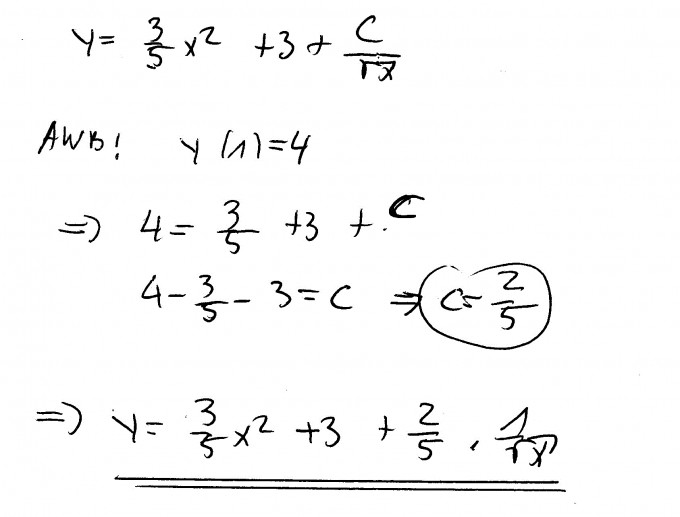 y = 3/5 x² + 3 + C/√x
AWB! y(1)=4
=> 4 = 3/5 + 3 + C
4 - 3/5 - 3 = C => C = 2/5
=> y = 3/5 x² + 3 + 2/5 · 1/√x